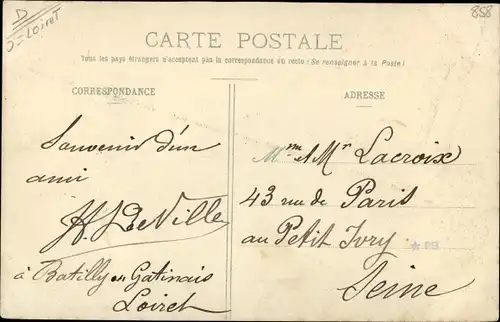 D
D=LOIRET
858
CARTE POSTALE
Tous les pays étrangers n'acceptent pas la correspondance au recto (Se renseigner à la Poste)
CORRESPONDANCE
ADRESSE
Souvenir d'un
ami
H. DeVille
à Batilly en Gatinais
Loiret
Mme et Mr Lacroix
43 rue de Paris
au Petit Ivry
Seine